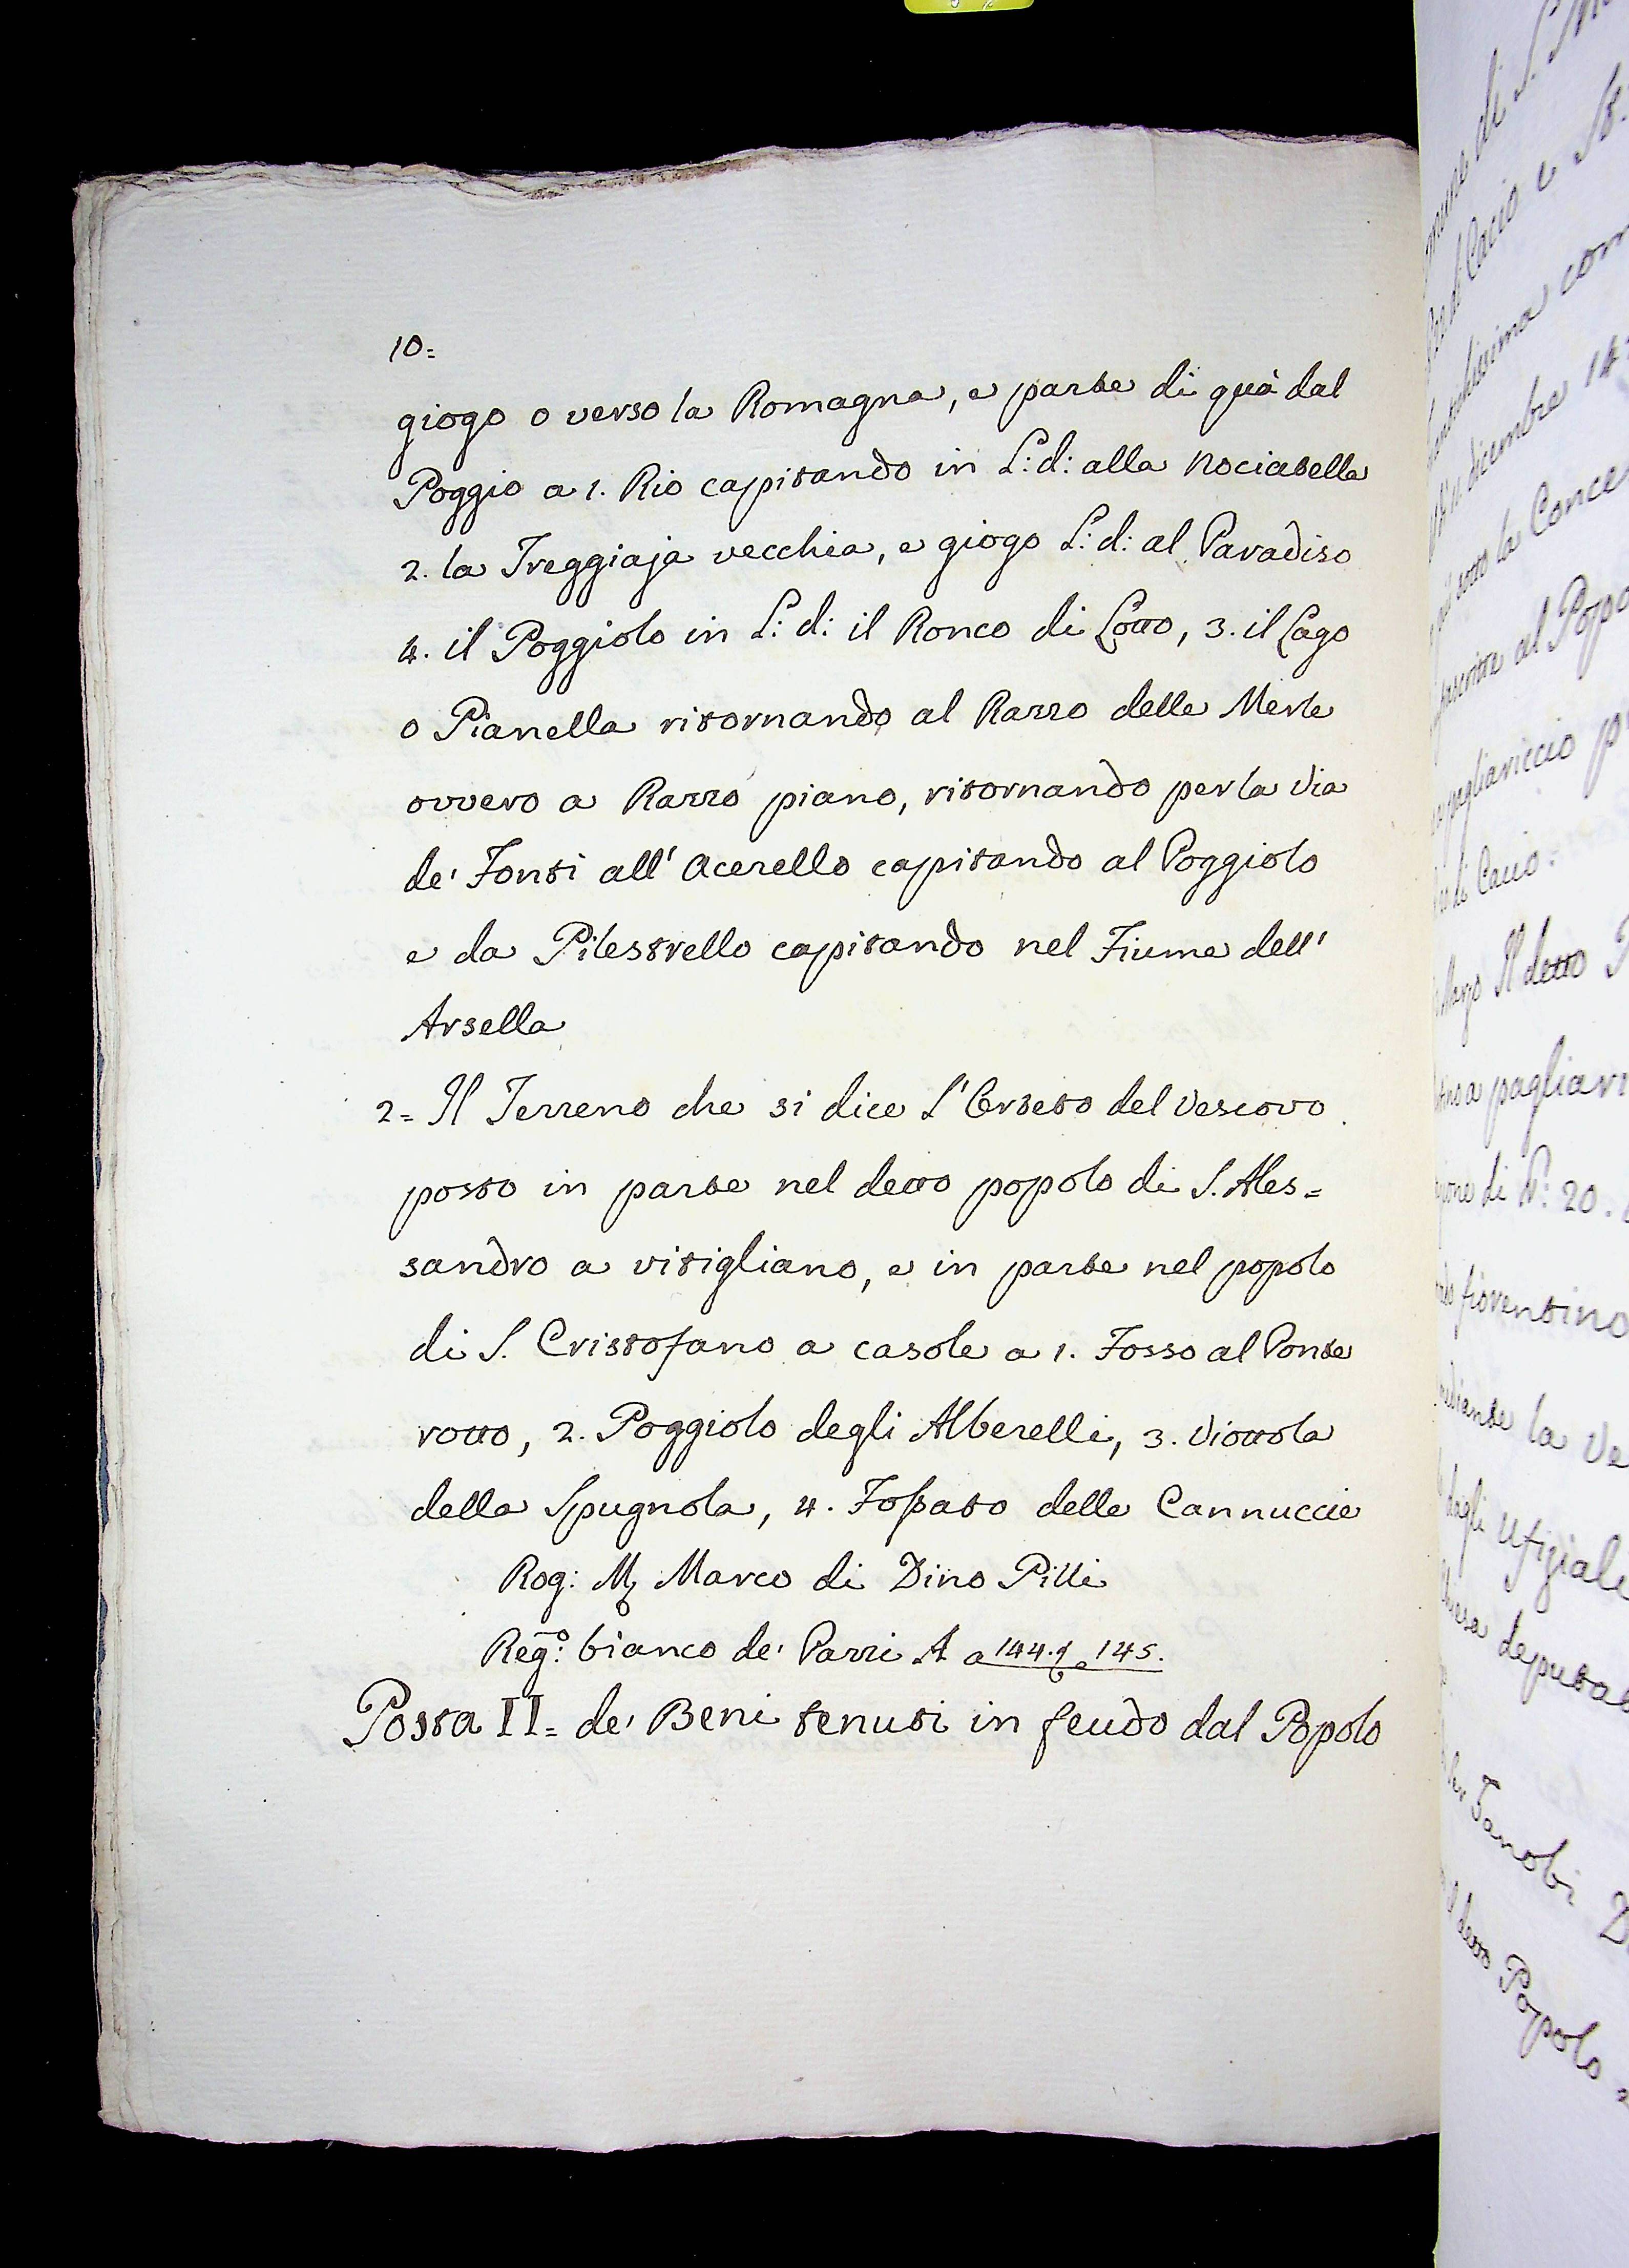 10=
giogo o verso la Romagna, e parte di quà dal
Poggio a 1. Rio capitando in L: d: alla Nociatella
2. la Treggiaja vecchia, e giogo L: d: al Paradiso
4. il Poggiolo in L: d: il Ronco di Lotto, 3. il Lago
o Pianella ritornando al Razzo delle Merle
ovvero a Razzo piano, ritornando per la Via
de' Fonti all' Acerello capitando al Poggiolo
e da Pilestrello capitando nel Fiume dell'
Arsella
2= Il Terreno che si dice L' Certeto del Vescovo
posto in parte nel detto popolo di S. Ales=
sandro a vitigliano, e in parte nel popolo
di S. Cristofano a casole a 1. Fosso al Ponte
rotto, 2. Poggiolo degli Alberelli, 3. Viottola
della Spugnola, 4. Fossato delle Cannuccie
Rog: Marco di Dino Pilli
Reg.o: bianco de' Pazzi A a 144. e 145.
Posta II= de' Beni tenuti in feudo dal Popolo
di S.
di Cacio e
dicembre
sotto la Conce
al Popo
di Cacio.
Il detto
a pagliari
di N: 20.
fiorentino
la Ve
dagli Ufiziale
deputat
Zanobi D
detto Popolo